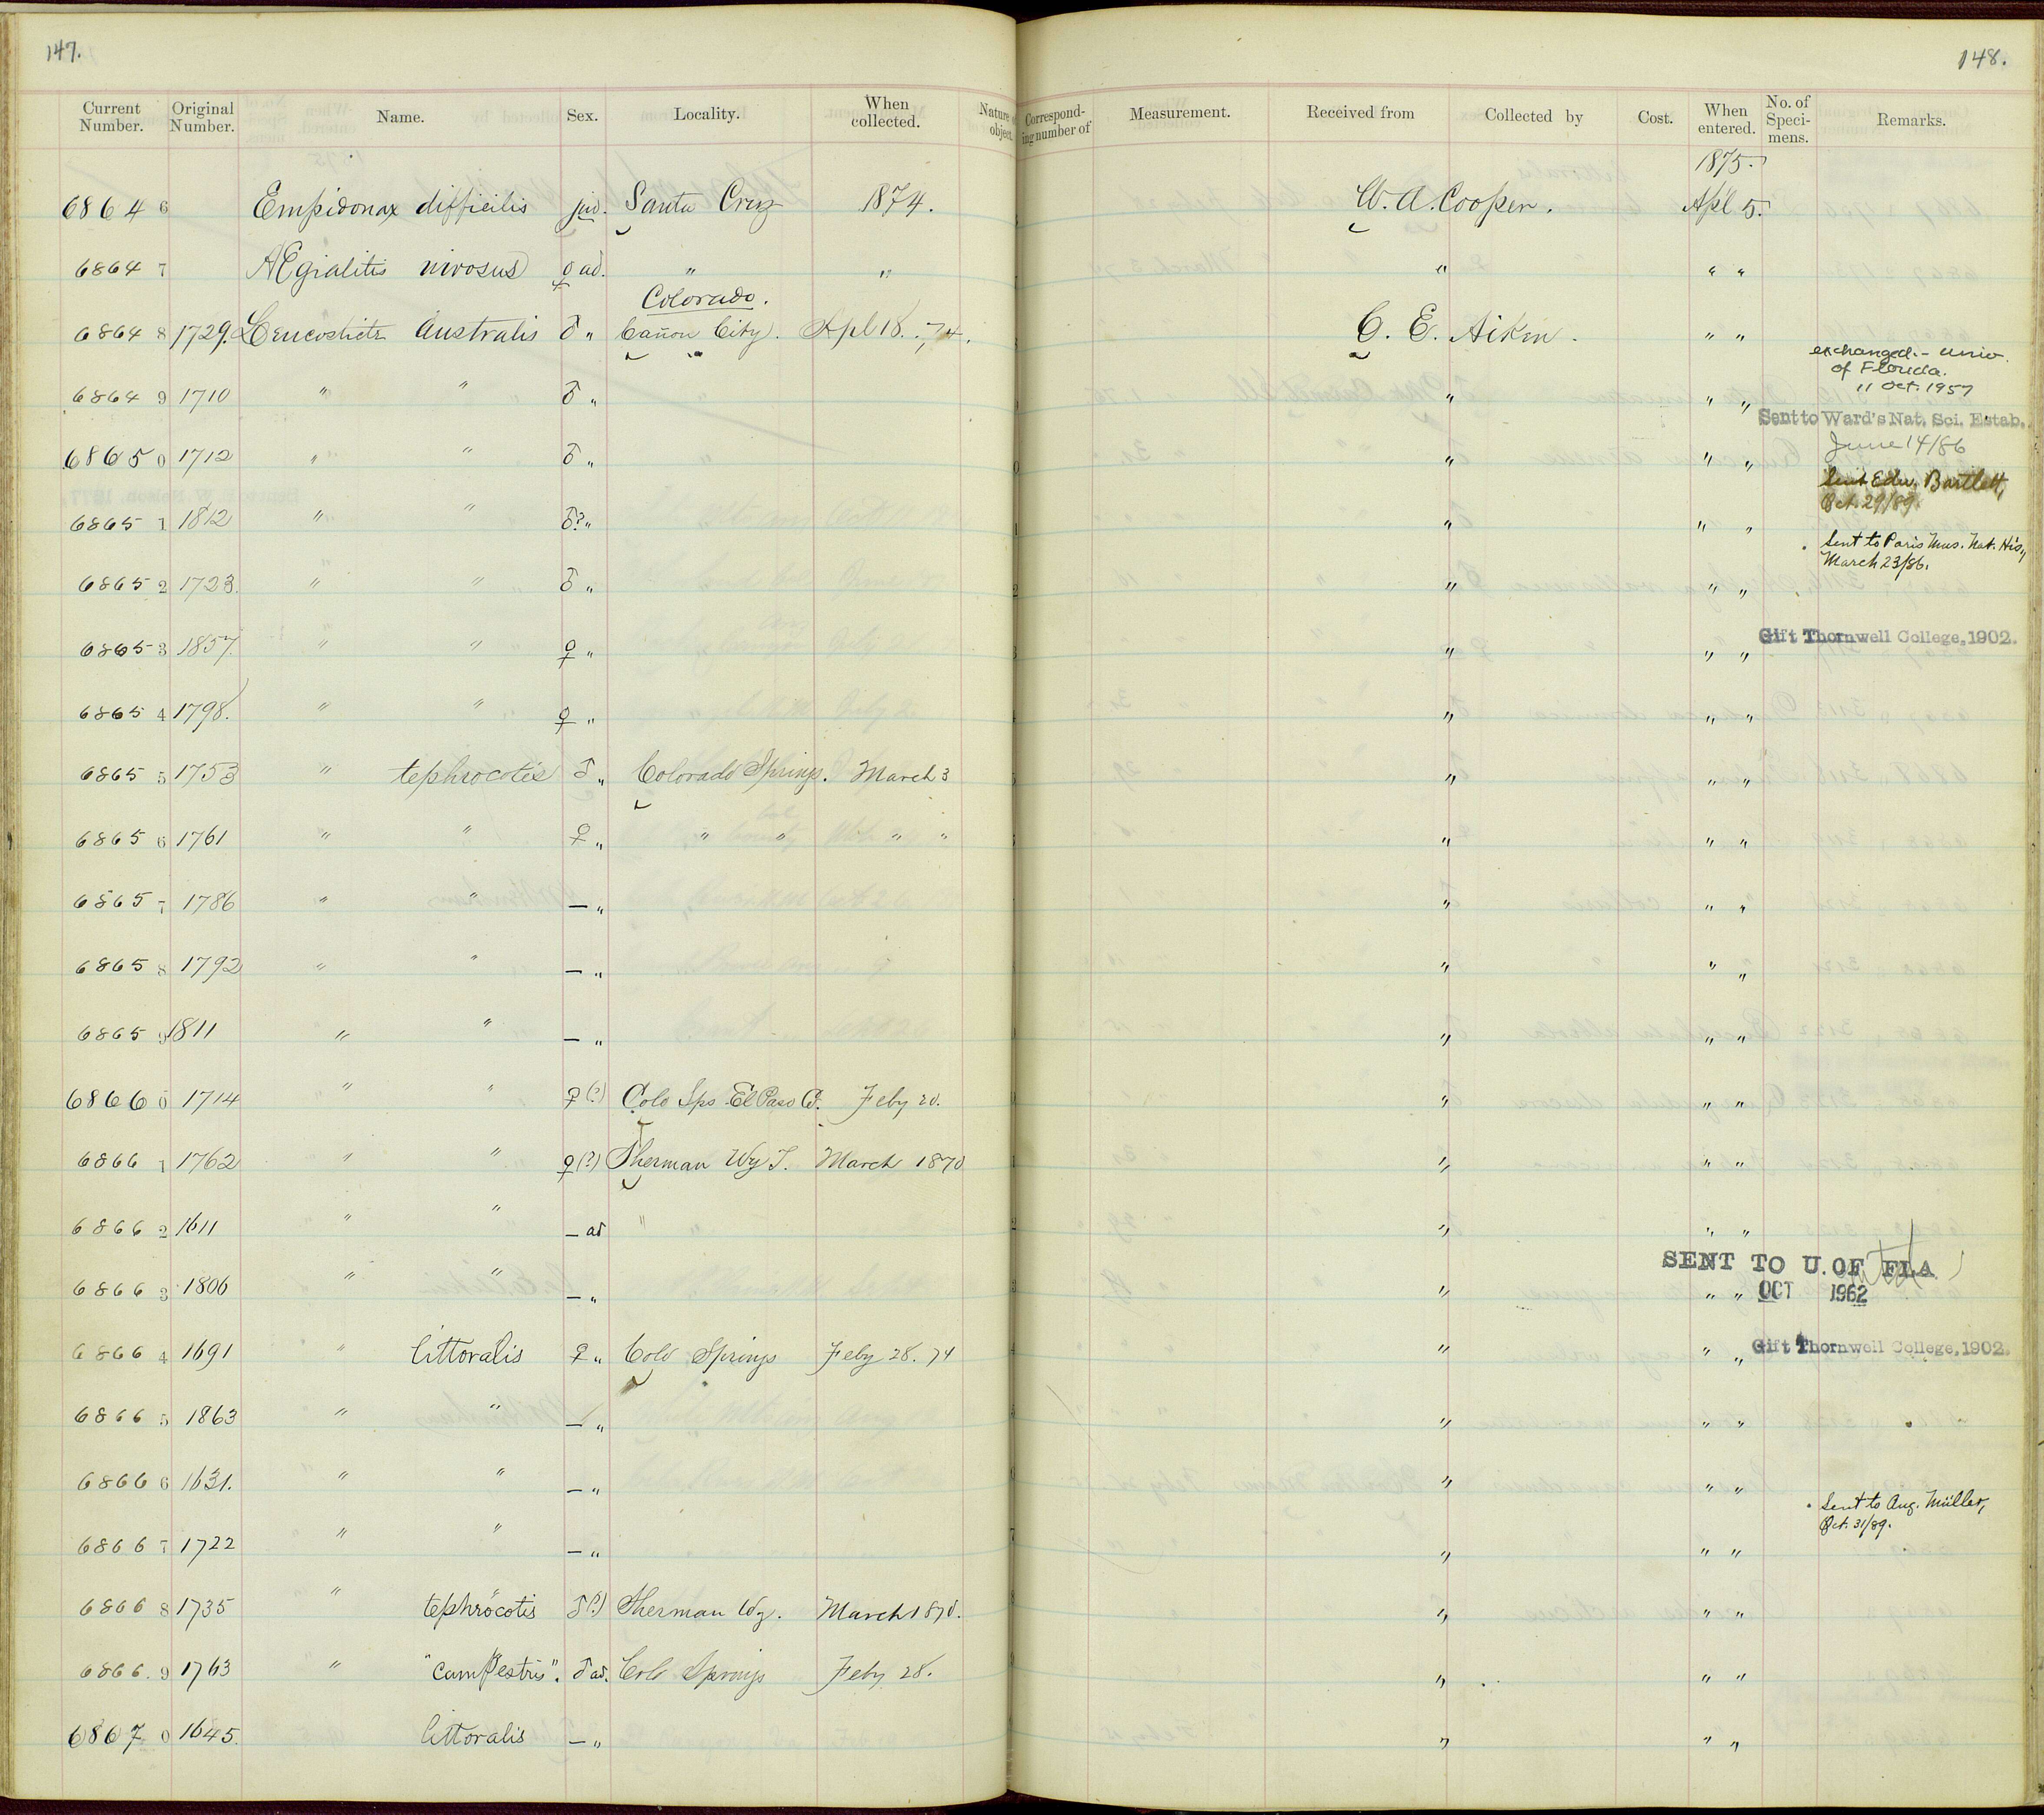 147.
148.
Current Number. Original Number. Name. Sex. Locality. When collected. Nature of object. Corresponding number of Measurement. Received from Collected by Cost. When entered. No. of Specimens. Remarks.
1875.
68646 Empidonax difficilis juv. Santa Cruz 1874. W. A. Cooper. Apl 5.
68647 AEgialitis nivosus ♀ ad. " " " " "
Colorado.
68648 1729. Leucosticte Australis ♂ " Cañon City. Apl 18. 74. C. E. Aiken. " "
exchanged - Univ. of Florida. 11 Oct. 1957
68649 1710 " " ♂ " " " "
Sent to Ward's Nat. Sci. Estab.
June 14/86
68650 1712 " " ♂ " " " "
Sent Edw. Bartlett, Oct. 29/89.
68651 1812 " " ♂? " " " "
Sent to Paris Mus. Nat. His., March 23/86.
68652 1723. " " ♂ " " " "
68653 1857. " " ♀ " " " " Gift Thornwell College, 1902.
68654 1798. " " ♀ " " " "
68655 1753 " tephrocotis ♂ " Colorado Springs. March 3 " " "
68656 1761 " " ♀ " " " " " " " "
68657 1786 " " — " " " "
68658 1792 " " — " " " "
68659 1811 " " — " " " "
68660 1714 " " ♀ (?) Colo Sps El Paso Co. Feby 20. " " "
68661 1762 " " ♀ (?) Sherman Wy T. March 1870 " " "
68662 1611 " " — ad " " " "
SENT TO U. OF FLA
68663 1806 " " — " " " " OCT 1962
68664 1691 " littoralis ♀ " Colo Springs Feby 28. 74 " " " Gift Thornwell College, 1902.
68665 1863 " " — " " " "
68666 1631. " " — " " " "
Sent to Aug. Müller, Oct. 31/89.
68667 1722 " " — " " " "
68668 1735 " tephrocotis ♂ (?) Sherman Wy. March 1870. " " "
68669 1763 " "campestris". ♂ ad. Colo Springs Feby 28. " " "
68670 1645. littoralis — " " " "